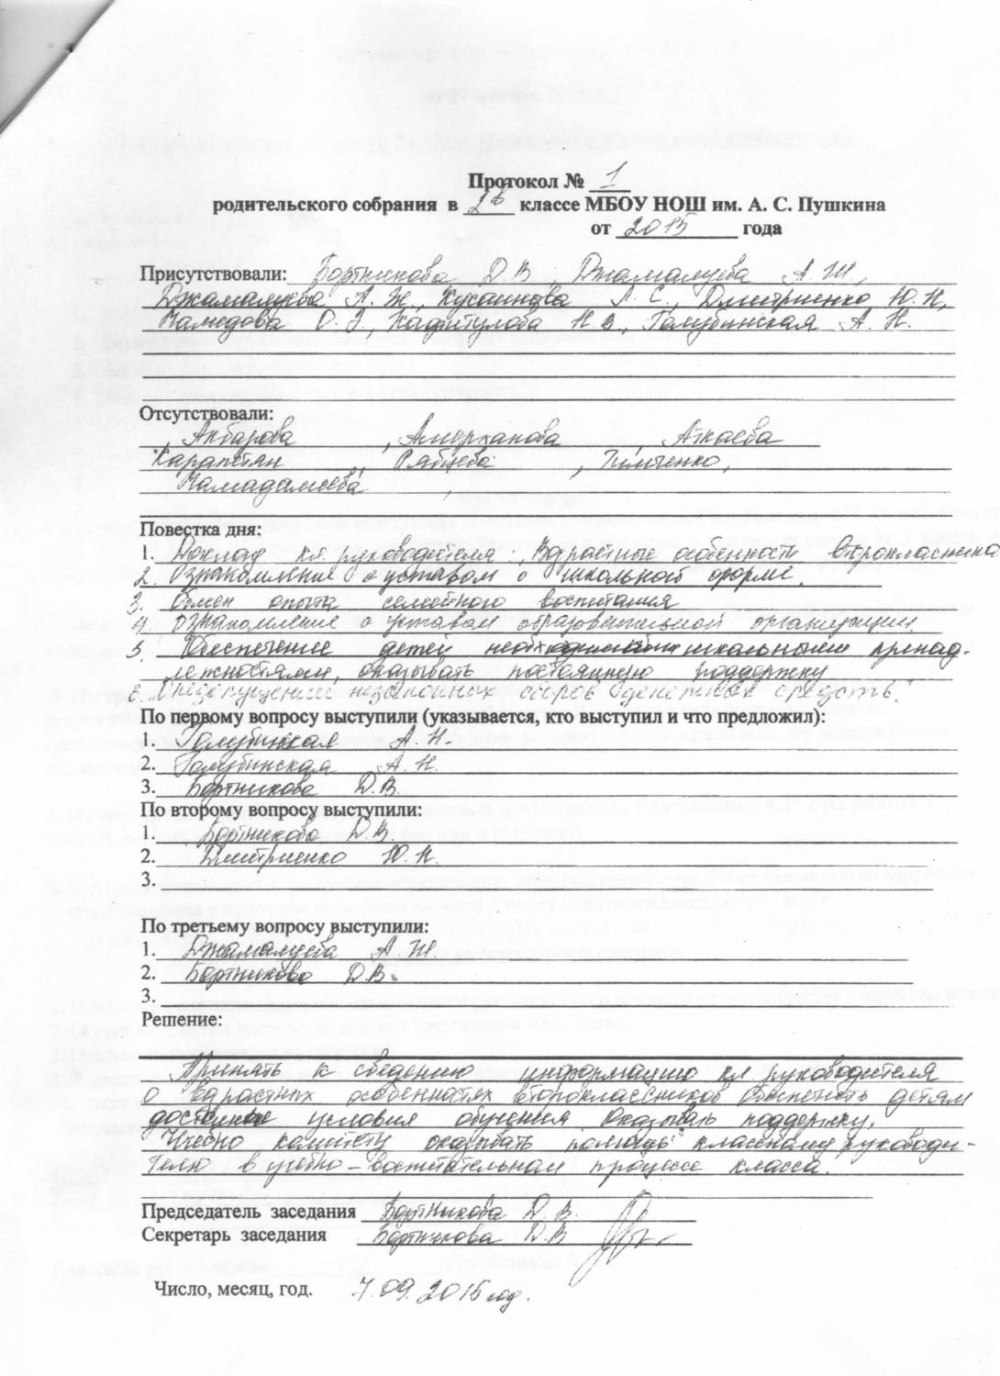 Протокол № 1
родительского собрания в 2в классе МБОУ НОШ им. А. С. Пушкина
от 2015 года
Присутствовали: Бортникова Д.В Джамалуева А Ж,
Джамалуева А. Ж., Л. С., Дмитриенко Ю. Н,
Мамедова О. Н.В., Голубинская А. Н.
Отсутствовали:
, Акбарова , Амерханова , Аткаева
Карапетян , Рябцева , Тимченко,
Мамадамеева ,
Повестка дня:
1. Доклад кл. руководителя: Вдрастные особенности второкласника
2. Ознакомление с уставом о школьной форме.
3. Обмен опыта семейного воспитания
4. Ознакомление с уставом образовательной организации.
5. Обеспечение детей школьными принад-
лежностями, оказывать постоянную поддержку
6. "О недопущении незаконных сборов денежных средств."
По первому вопросу выступили (указывается, кто выступил и что предложил):
1. Голубинская А.Н.
2. Голубинская А.Н.
3. Бортникова Д.В.
По второму вопросу выступили:
1. Бортникова Д.В.
2. Дмитриенко Ю.Н.
3.
По третьему вопросу выступили:
1. Джамалуева А.Ж.
2. Бортникова Д.В.
3.
Решение:
Принять к сведению информацию кл руководителя
о вдрастных особенностях второклассников обеспечить детям
достойные условия обучения оказывать поддержку.
Учебно комитету оказывать помощь классному руководи-
телю в учебно-воспитательном процессе класса.
Председатель заседания Бортникова Д. В.
Секретарь заседания Бортникова Д.В
Число, месяц, год. 7.09.2015 год.